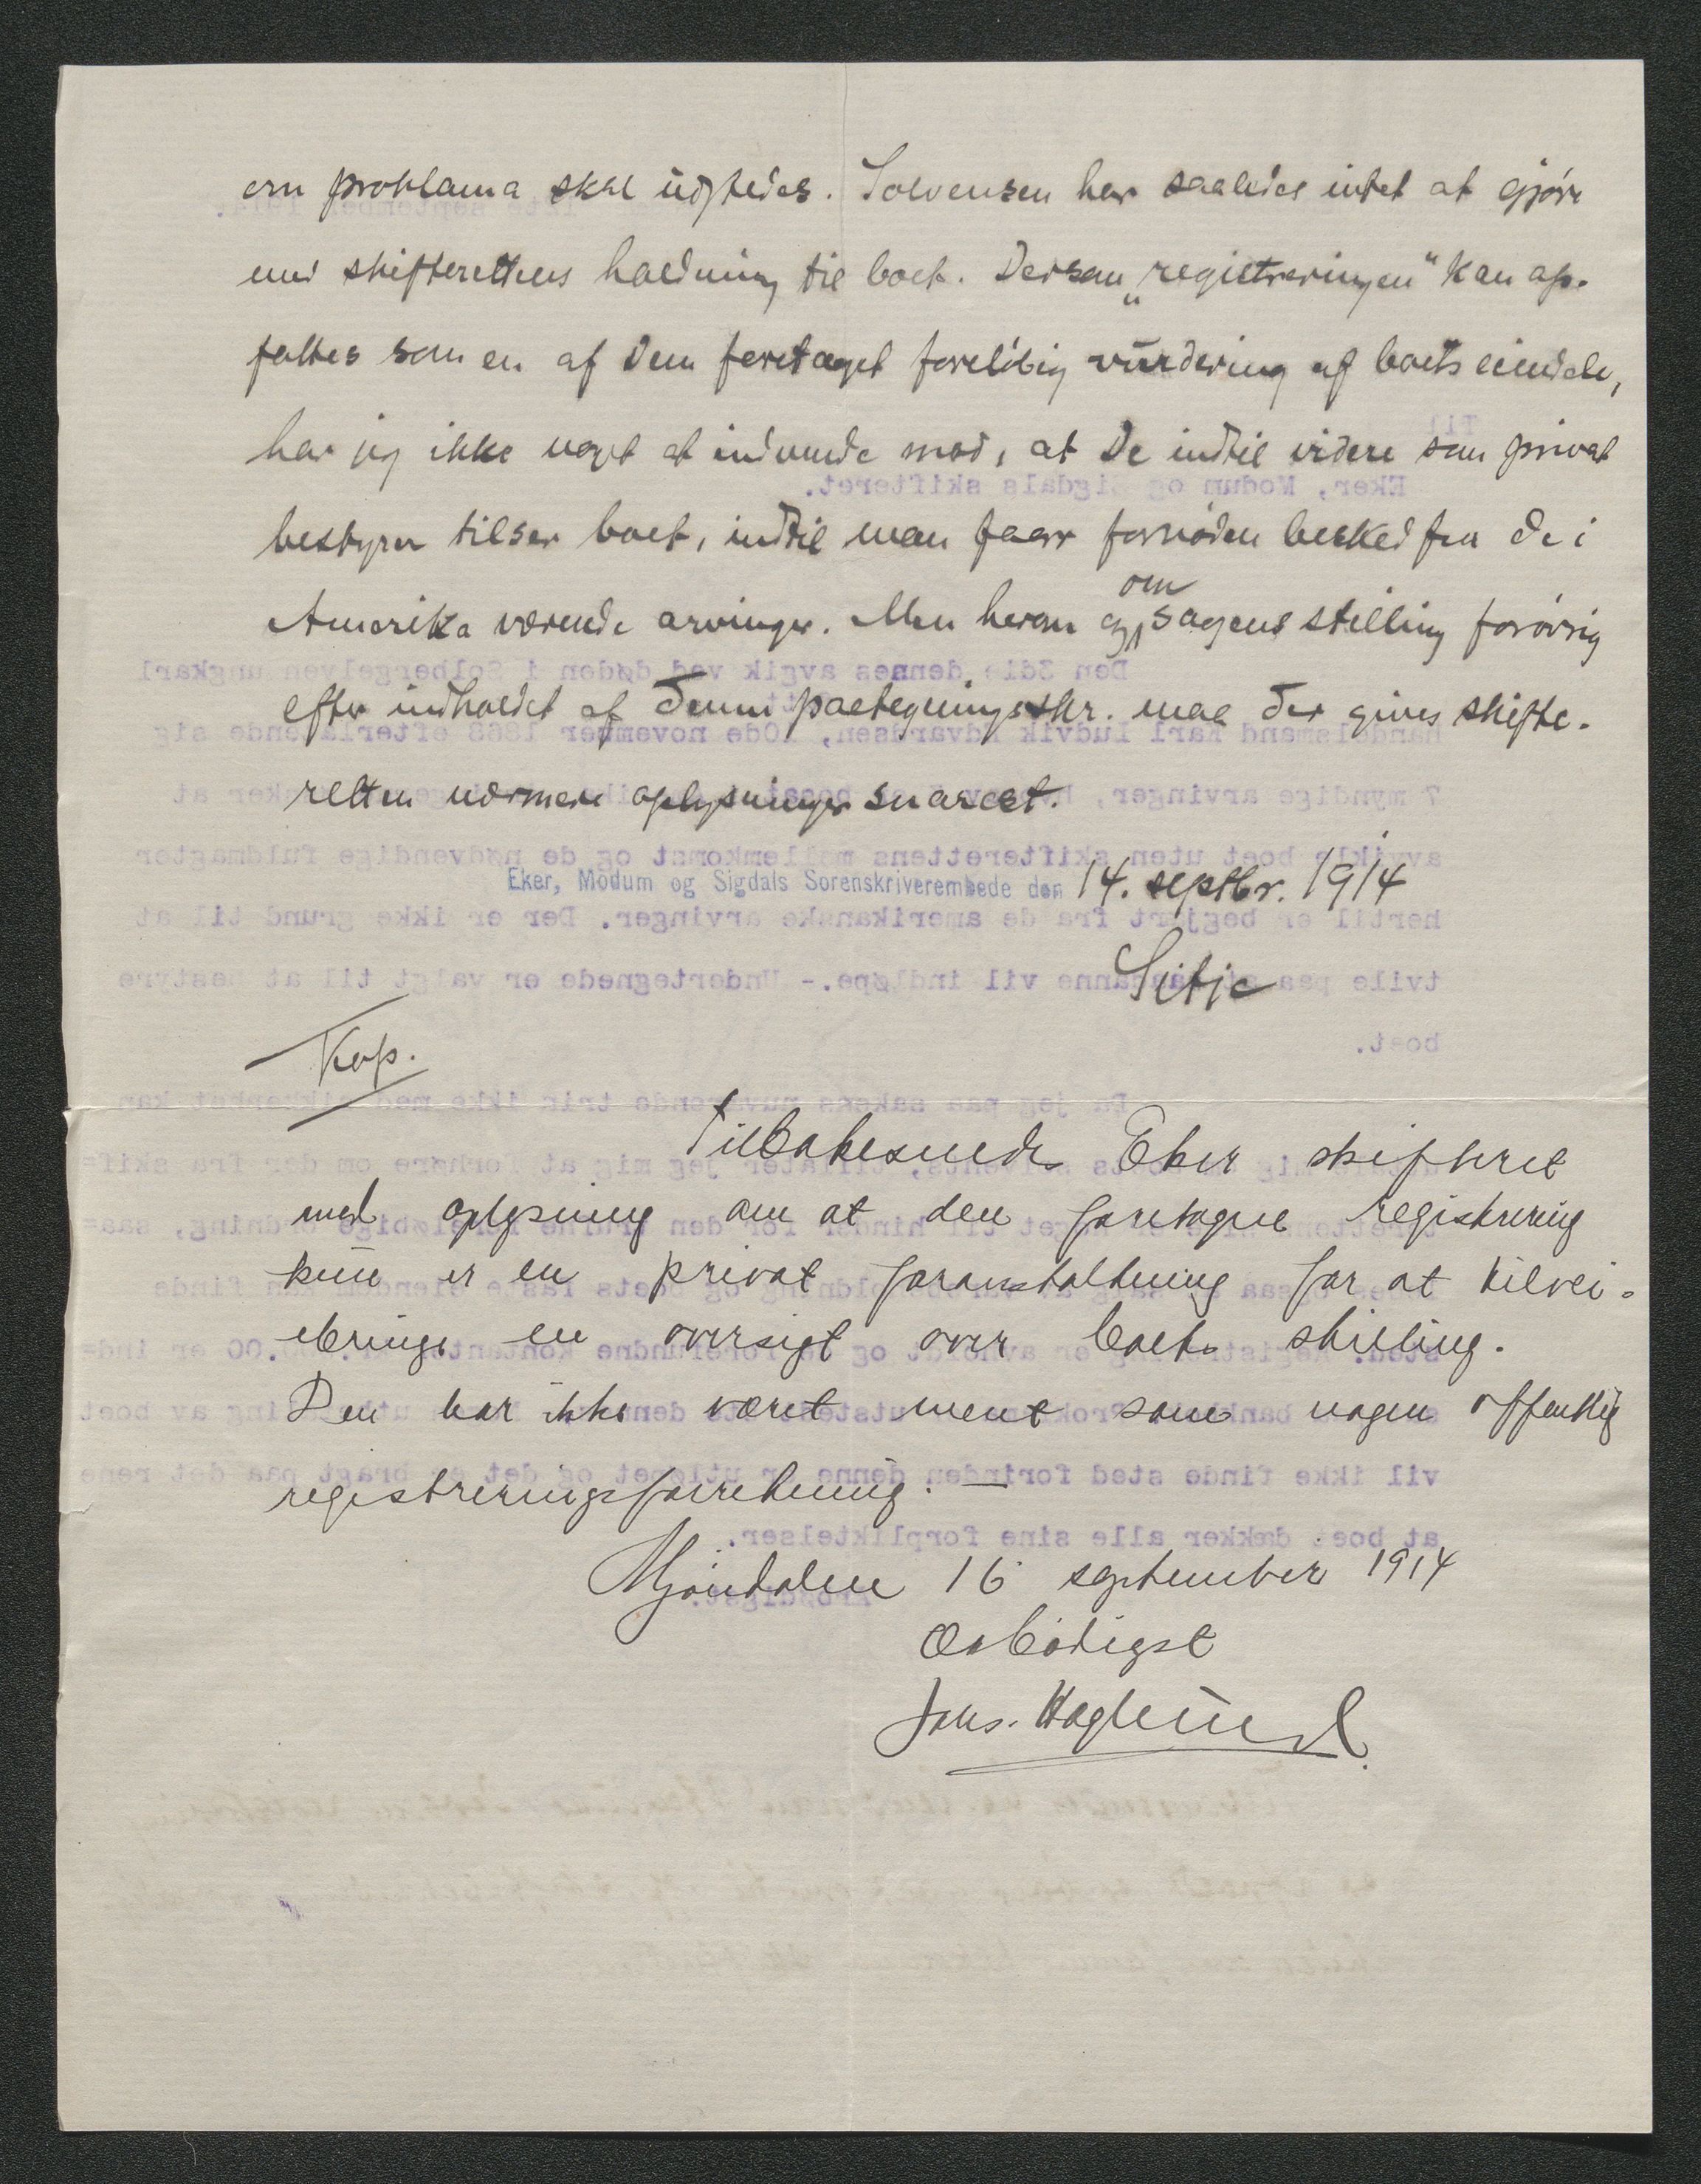 om proklama skal udstedes. Solvensen har saaledes intet at gjøre
med skifterettens holdning til boet. Dersom „registreringen“ kan op-
fattes som en af Dem foretaget foreløbig vurdering af boets eiendele,
har jeg ikke noget at indvende mod, at De indtil videre som privat
bestyrer tilser boet, indtil man faar fornøden besked fra de i
Amerika værende arvinger. Men herom og om sagens stilling forøvrig
efter indholdet af denne paategningsskr. maa der gives skifte-
retten nærmere oplysninger snarest.
Eker, Modum og Sigdals Sorenskriverembede den 14. septbr. 1914
Sitje
Kop.
Tilbakesendes Eker skifteret
med oplysning om at den foretagne registrering
kun er en privat foranstaltning for at tilvei-
ebringe en oversigt over boets stilling.
Den har ikke været ment som nogen offentlig
registreringsforretning. —
Mjøndalen 16 september 1914
Ærbødigst
Johs. Haglund